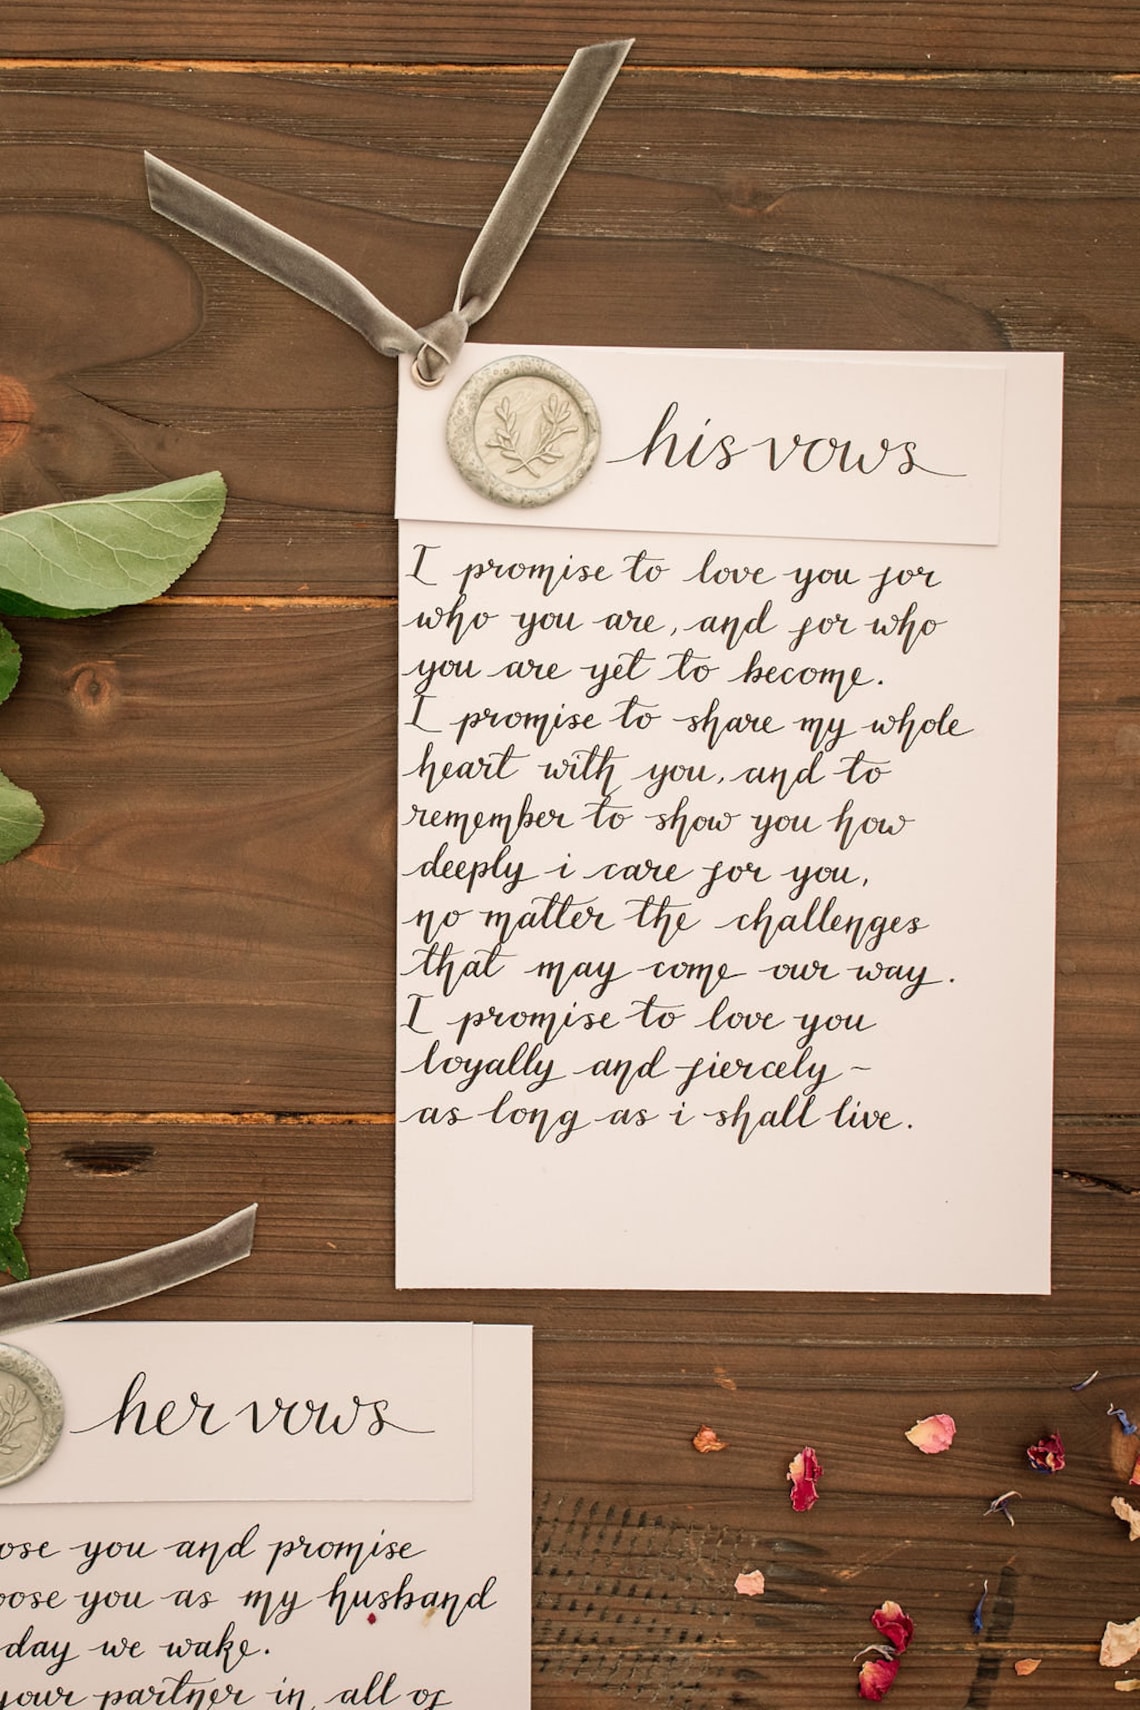 his vows
I promise to love you for
who you are, and for who
you are yet to become.
I promise to share my whole
heart with you, and to
remember to show you how
deeply i care for you,
no matter the challenges
that may come our way.
I promise to love you
loyally and fiercely -
as long as i shall live.
her vows
you and promise
you as my husband
day we wake.
your partner in all of